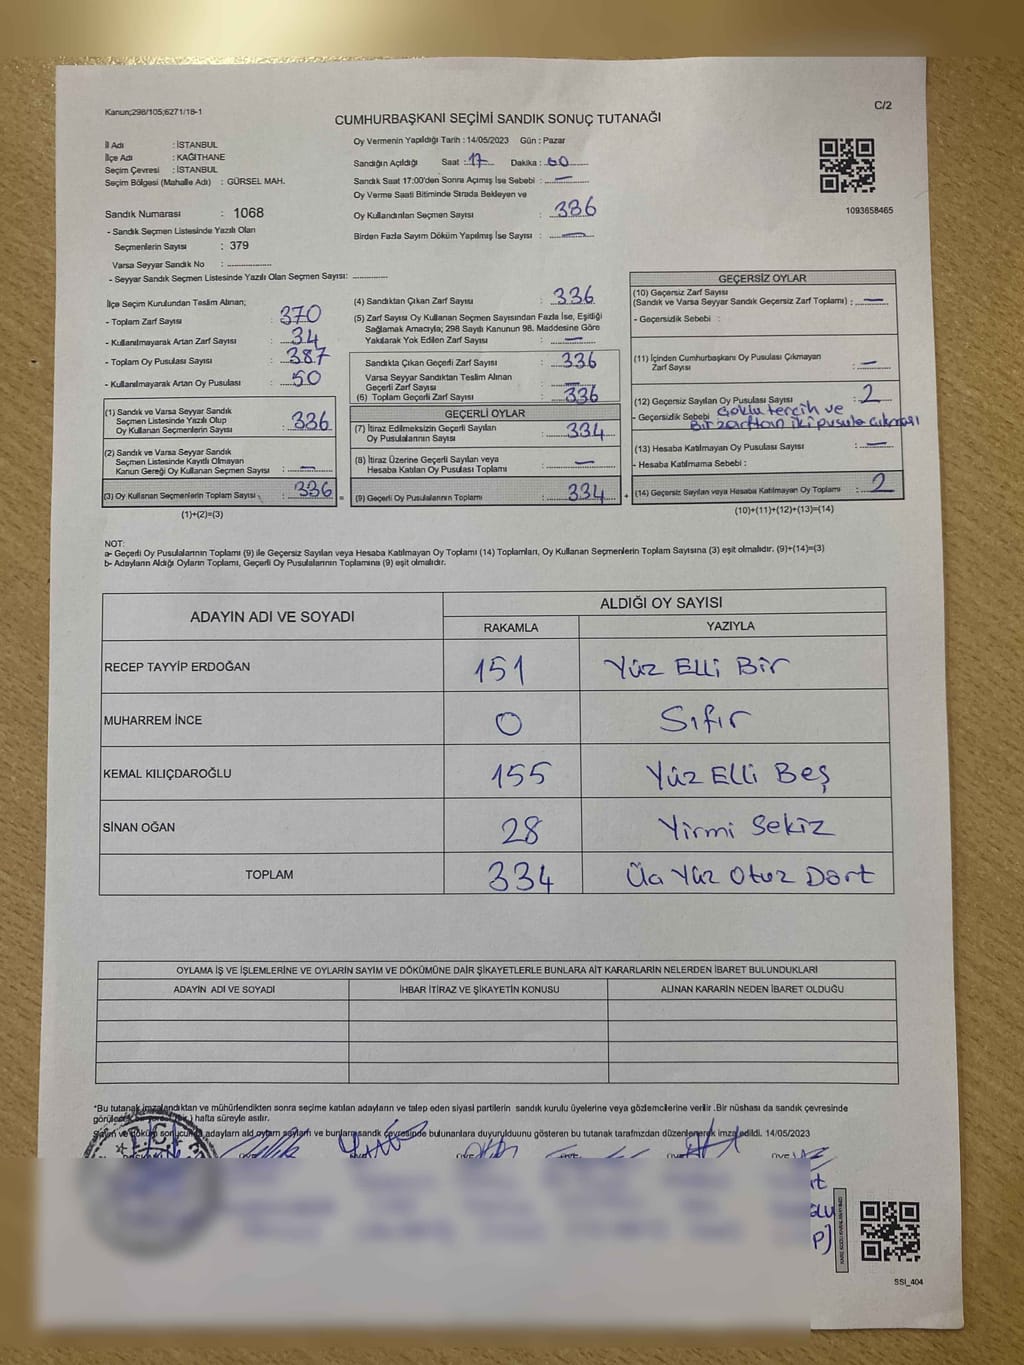 Kanun;298/105;6271/18-1
C/2
CUMHURBAŞKANI SEÇİMİ SANDIK SONUÇ TUTANAĞI
İl Adı : İSTANBUL
İlçe Adı : KAĞITHANE
Seçim Çevresi : İSTANBUL
Seçim Bölgesi (Mahalle Adı) : GÜRSEL MAH.
Sandık Numarası : 1068
- Sandık Seçmen Listesinde Yazılı Olan
Seçmenlerin Sayısı : 379
Varsa Seyyar Sandık No :
- Seyyar Sandık Seçmen Listesinde Yazılı Olan Seçmen Sayısı:
Oy Vermenin Yapıldığı Tarih : 14/05/2023 Gün : Pazar
Sandığın Açıldığı Saat : 17 Dakika : 60
Sandık Saat 17:00'den Sonra Açımış İse Sebebi : —
Oy Verme Saati Bitiminde Strada Bekleyen ve
Oy Kullandırılan Seçmen Sayısı : 336
Birden Fazla Sayım Döküm Yapılmış İse Sayısı : —
1093658465
İlçe Seçim Kurulundan Teslim Alınan;
- Toplam Zarf Sayısı : 370
- Kullanılmayarak Artan Zarf Sayısı : 34
- Toplam Oy Pusulası Sayısı : 387
- Kullanılmayarak Artan Oy Pusulası : 50
(1) Sandık ve Varsa Seyyar Sandık
Seçmen Listesinde Yazılı Olup
Oy Kullanan Seçmenlerin Sayısı : 336
(2) Sandık ve Varsa Seyyar Sandık
Seçmen Listesinde Kayıtlı Olmayan
Kanun Gereği Oy Kullanan Seçmen Sayısı : —
(3) Oy Kullanan Seçmenlerin Toplam Sayısı : 336 =
(1)+(2)=(3)
(4) Sandıktan Çıkan Zarf Sayısı : 336
(5) Zarf Sayısı Oy Kullanan Seçmen Sayısından Fazla İse, Eşitliği
Sağlamak Amacıyla; 298 Sayılı Kanunun 98. Maddesine Göre
Yakılarak Yok Edilen Zarf Sayısı : —
Sandıkta Çıkan Geçerli Zarf Sayısı : 336
Varsa Seyyar Sandıktan Teslim Alınan
Geçerli Zarf Sayısı : —
(6) Toplam Geçerli Zarf Sayısı : 336
GEÇERLİ OYLAR
(7) İtiraz Edilmeksizin Geçerli Sayılan
Oy Pusulalarının Sayısı : 334
(8) İtiraz Üzerine Geçerli Sayılan veya
Hesaba Katılan Oy Pusulası Toplamı : —
(9) Geçerli Oy Pusulalarının Toplamı : 334 +
GEÇERSİZ OYLAR
(10) Geçersiz Zarf Sayısı
(Sandık ve Varsa Seyyar Sandık Geçersiz Zarf Toplamı) : —
- Geçersizlik Sebebi :
(11) İçinden Cumhurbaşkanı Oy Pusulası Çıkmayan
Zarf Sayısı : —
(12) Geçersiz Sayılan Oy Pusulası Sayısı : 2
- Geçersizlik Sebebi Çoklu tercih ve
Bir zarftan iki pusula çıkması
(13) Hesaba Katılmayan Oy Pusulası Sayısı : —
- Hesaba Katılmama Sebebi :
(14) Geçersiz Sayılan veya Hesaba Katılmayan Oy Toplamı : 2
(10)+(11)+(12)+(13)=(14)
NOT:
a- Geçerli Oy Pusulalarının Toplamı (9) ile Geçersiz Sayılan veya Hesaba Katılmayan Oy Toplamı (14) Toplamları, Oy Kullanan Seçmenlerin Toplam Sayısına (3) eşit olmalıdır. (9)+(14)=(3)
b- Adayların Aldığı Oyların Toplamı, Geçerli Oy Pusulalarının Toplamına (9) eşit olmalıdır.
ADAYIN ADI VE SOYADI
ALDIĞI OY SAYISI
RAKAMLA YAZIYLA
RECEP TAYYİP ERDOĞAN 151 Yüz Elli Bir
MUHARREM İNCE 0 Sıfır
KEMAL KILIÇDAROĞLU 155 Yüz Elli Beş
SİNAN OĞAN 28 Yirmi Sekiz
TOPLAM 334 Üç Yüz Otuz Dört
OYLAMA İŞ VE İŞLEMLERİNE VE OYLARIN SAYIM VE DÖKÜMÜNE DAİR ŞİKAYETLERLE BUNLARA AİT KARARLARIN NELERDEN İBARET BULUNDUKLARI
ADAYIN ADI VE SOYADI İHBAR İTİRAZ VE ŞİKAYETİN KONUSU ALINAN KARARIN NEDEN İBARET OLDUĞU
*Bu tutanak imzalandıktan ve mühürlendikten sonra seçime katılan adayların ve talep eden siyasi partilerin sandık kurulu üyelerine veya gözlemcilerine verilir .Bir nüshası da sandık çevresinde
hafta süreyle asılır.
Sayım ve döküm sonucunda adayların aldı oyların sayıları ve bunların sandık çevresinde bulunanlara duyurulduunu gösteren bu tutanak tarafmızdan düzenlenerek imza edildi. 14/05/2023
SSI_404